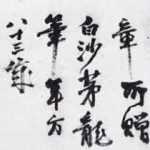 章所贈
白沙茅龍
筆年方
八十三歲